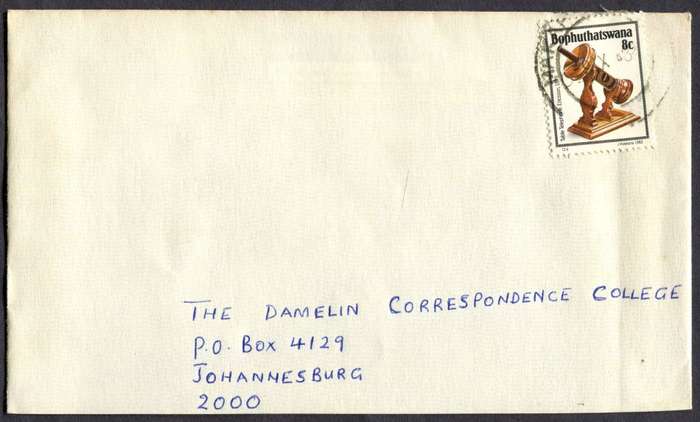 Bophuthatswana
8c
THE DAMELIN CORRESPONDENCE COLLEGE
P.O. BOX 4129
JOHANNESBURG
2000